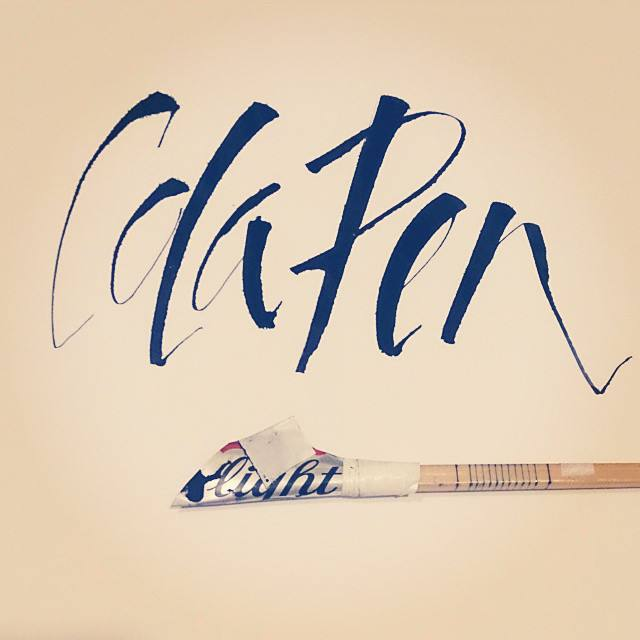 Cola Pen
light